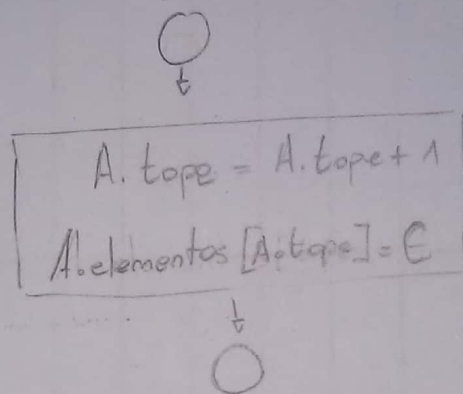 A.tope = A.tope + 1
A.elementos [A.tope] = E